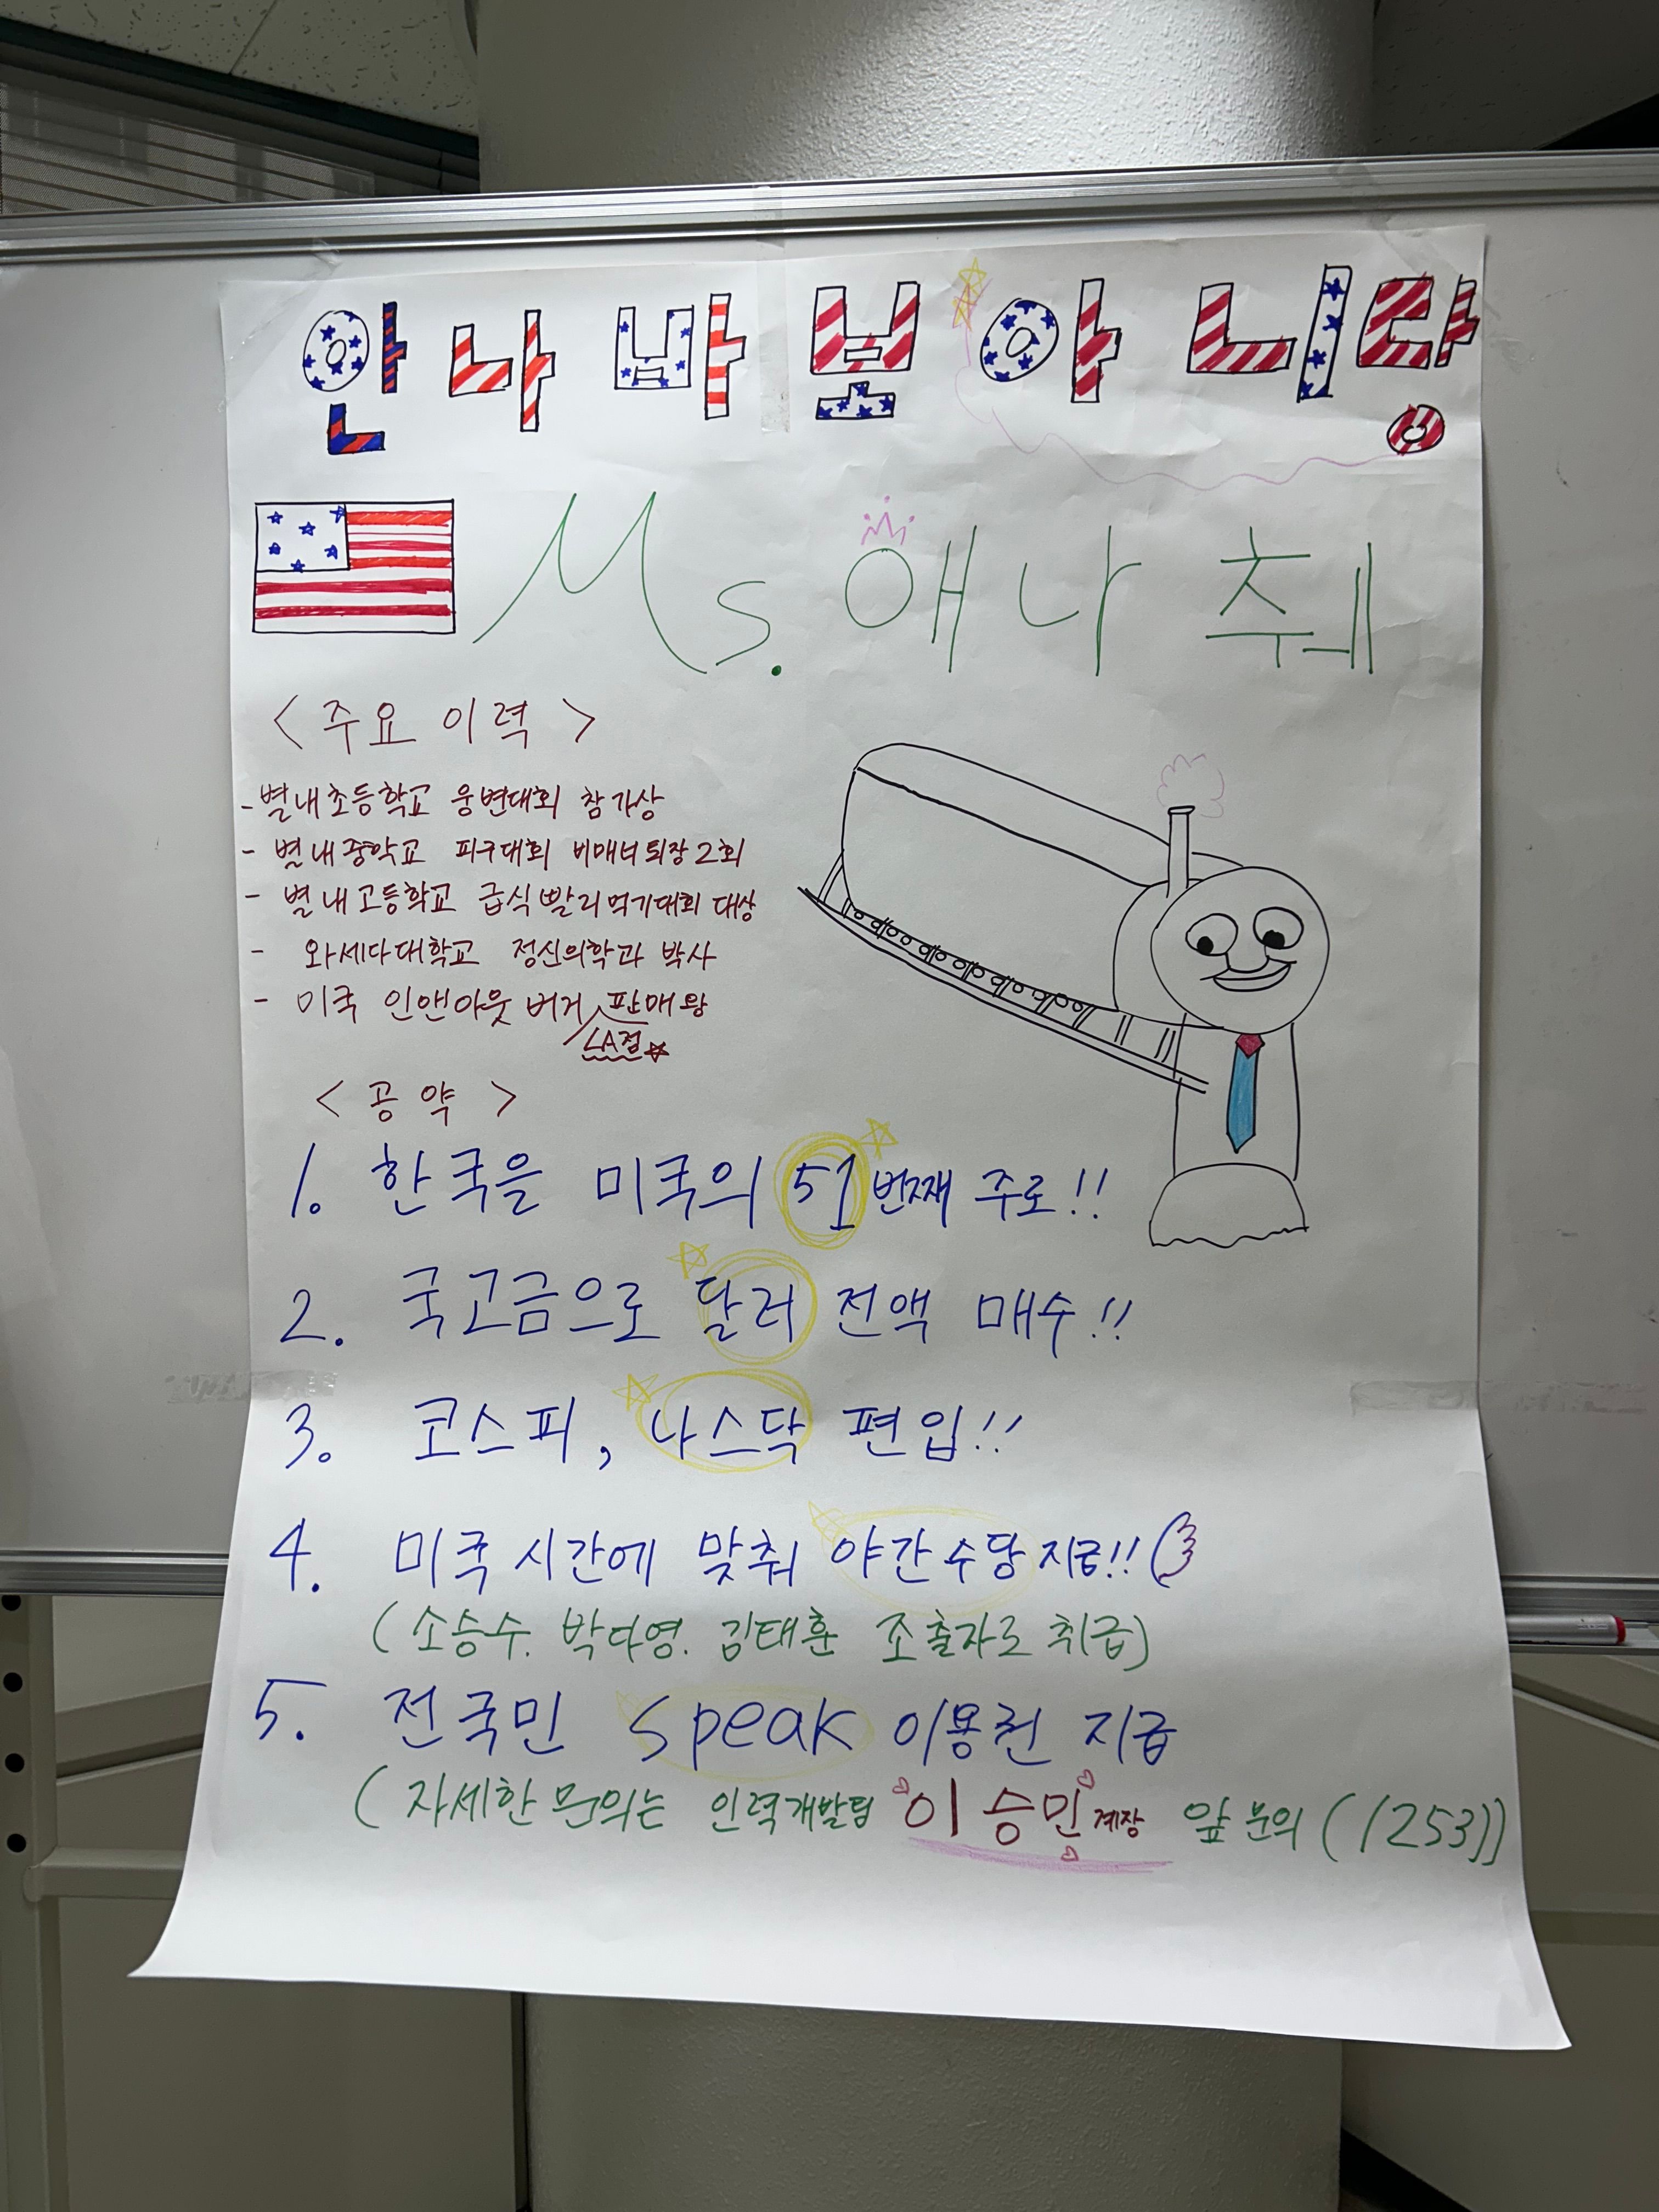 안나 바보 아니랑
Ms. 애나 췌
<주요 이력>
- 별내초등학교 웅변대회 참가상
- 별내중학교 피구대회 비매너 퇴장 2회
- 별내고등학교 급식 빨리 먹기대회 대상
- 와세다대학교 정신의학과 박사
- 미국 인앤아웃 버거 판매왕
LA점
<공약>
1. 한국을 미국의 51번째 주로!!
2. 국고금으로 달러 전액 매수!!
3. 코스피, 나스닥 편입!!
4. 미국 시간에 맞춰 야간수당 지급!!
(소승수. 박다영. 김태훈 조출자로 취급)
5. 전국민 speak 이용권 지급
(자세한 문의는 인력개발팀 이승민 계장 앞 문의 (1253))